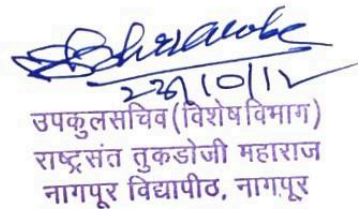 22/10/12
उपकुलसचिव (विशेष विभाग)
राष्ट्रसंत तुकडोजी महाराज
नागपूर विद्यापीठ, नागपूर